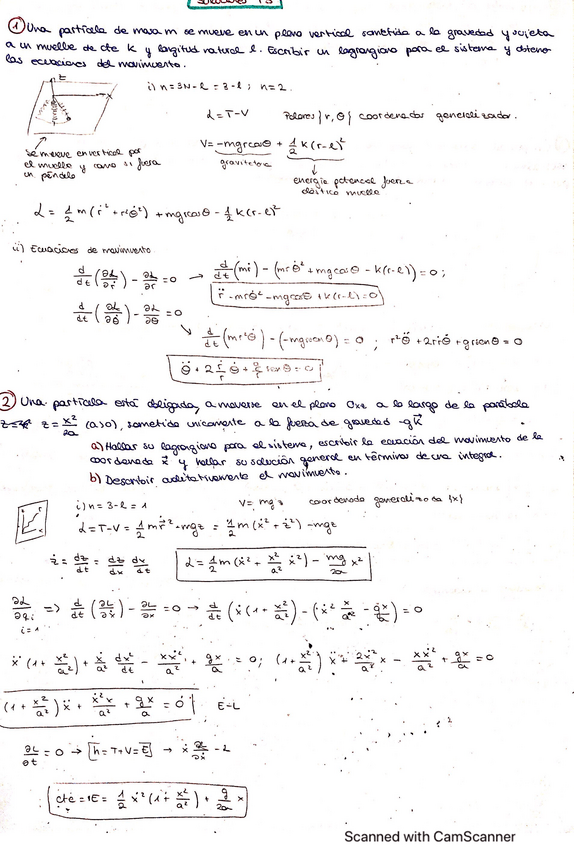 ① Una partícula de masa m se mueve en un plano vertical sometida a la gravedad y sujeta
a un muelle de cte k y longitud natural l. Escribir un lagrangiano para el sistema y obtener
las ecuaciones del movimiento.
z
x
i) n = 3N - l = 3 - l ; n = 2.
L = T - V Polares {r, θ} coordenadas generalizadas.
Se mueve en vertical por
el muelle y como si fuera
un péndulo
V = -mgr cosθ + 1/2 k (r - l)²
gravitatoria
energía potencial fuerza
elástica muelle
L = 1/2 m (ṙ² + r²θ̇²) + mgr cosθ - 1/2 k (r - l)²
ii) Ecuaciones de movimiento
d/dt (∂L/∂ṙ) - ∂L/∂r = 0 → d/dt (mṙ) - (mrθ̇² + mg cosθ - k(r - l)) = 0 ;
r̈ - mrθ̇² - mg cosθ + k(r - l) = 0
d/dt (∂L/∂θ̇) - ∂L/∂θ = 0
d/dt (mr²θ̇) - (-mgr senθ) = 0 ; r²θ̈ + 2rṙθ̇ + gr senθ = 0
θ̈ + 2 ṙ/r θ̇ + g/r senθ = 0
② Una partícula está obligada a moverse en el plano Oxz a lo largo de la parábola
z = x²/2a (a>0), sometida únicamente a la fuerza de gravedad -gk⃗
a) Hallar su lagrangiano para el sistema, escribir la ecuación del movimiento de la
coordenada x⃗ y hallar su solución general en términos de una integral.
b) Describir cualitativamente el movimiento.
i) n = 3 - 2 = 1 V = mgz coordenada generalizada {x}
L = T - V = 1/2 m ṙ² - mgz = 1/2 m (ẋ² + ż²) - mgz
ż = dz/dt = dz/dx dx/dt L = 1/2 m (ẋ² + x²/a² ẋ²) - mg/2a x²
∂L/∂qᵢ ⇒ d/dt (∂L/∂ẋ) - ∂L/∂x = 0 → d/dt (ẋ (1 + x²/a²)) - (ẋ² x/a² - gx/a) = 0
i = 1
ẍ (1 + x²/a²) + ẋ/a² dx²/dt - xẋ²/a² + gx/a = 0 ; (1 + x²/a²) ẍ + 2ẋ²/a² x - xẋ²/a² + gx/a = 0
(1 + x²/a²) ẍ + ẋ²x/a² + gx/a = 0 E-L
∂L/∂t = 0 → [h = T + V = E] → ẋ ∂L/∂ẋ - L
cte = E = 1/2 ẋ² (1 + x²/a²) + g/2a x
Scanned with CamScanner